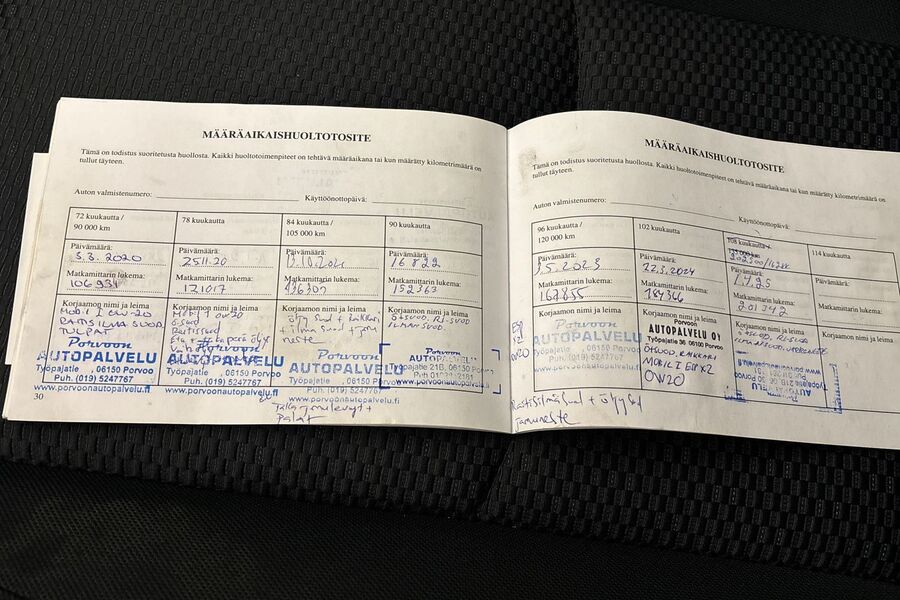 MÄÄRÄAIKAISHUOLTOTOSITE
Tämä on todistus suoritetusta huollosta. Kaikki huoltotoimenpiteet on tehtävä määräaikana tai kun määrätty kilometrimäärä on
tullut täyteen.
Auton valmistenumero:
Käyttöönottopäivä:
72 kuukautta /
90 000 km
78 kuukautta
84 kuukautta /
105 000 km
90 kuukautta
Päivämäärä:
3.3.2020
Päivämäärä:
25.11.20
Päivämäärä:
Päivämäärä:
16 8 22
Matkamittarin lukema:
106 931
Matkamittarin lukema:
121017
Matkamittarin lukema:
136301
Matkamittarin lukema:
152363
Korjaamon nimi ja leima
MOBIL 1 0W-20
RAITISILMA SUOD.
TULPAT
Porvoon
AUTOPALVELU
Työpajatie , 06150 Porvoo
Puh. (019) 5247767
www.porvoonautopalvelu.fi
Korjaamon nimi ja leima
Mobil 1 0W20
Raitissuod
Porvoon
AUTOPALVELU
Työpajatie , 06150 Porvoo
Puh. (019) 5247767
www.porvoonautopalvelu.fi
Korjaamon nimi ja leima
öljy suod + kakkari
+ ilma suod + jarru
neste
Porvoon
AUTOPALVELU
Työpajatie , 06150
Puh. (019) 5247767
www.porvoonautopalvelu.fi
jarrulevyt +
palat
Korjaamon nimi ja leima
Ö+SUOD. RI-SUOD
ILMANSUOD.
Porvoon
AUTOPALVELU
Työpajatie 21B, 06150 Porvoo
30
MÄÄRÄAIKAISHUOLTOTOSITE
Tämä on todistus suoritetusta huollosta. Kaikki huoltotoimenpiteet on tehtävä määräaikana tai kun määrätty kilometrimäärä on
tullut täyteen.
Auton valmistenumero:
Käyttöönottopäivä:
96 kuukautta /
120 000 km
102 kuukautta
108 kuukautta
114 kuukautta
Päivämäärä:
3.5.2023
Päivämäärä:
22.3.2024
Päivämäärä:
1.4.25
Päivämäärä:
Matkamittarin lukema:
167855
Matkamittarin lukema:
184366
Matkamittarin lukema:
201342
Matkamittarin lukema:
Korjaamon nimi ja leima
Porvoon
AUTOPALVELU
Työpajatie , 06150 Porvoo
Puh. (019) 5247767
www.porvoonautopalvelu.fi
Raitisilmasuod + öljysuod
jarruneste
Korjaamon nimi ja leima
Porvoon
AUTOPALVELU OY
Työpajatie 36 06100 Porvoo
Ö+SUOD, KAKKARI
MOBIL 1 ESP X2
0W20
Korjaamon nimi ja leima
Ö+SUOD, RI-SUOD
Porvoon
AUTOPALVELU
Korjaamon nimi ja leima